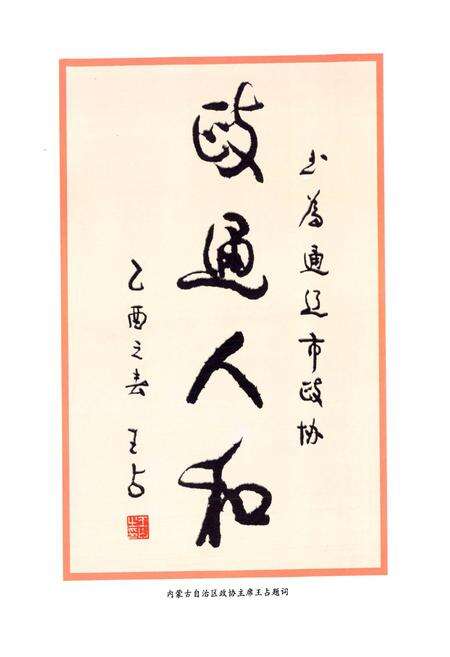 书为通辽市政协
政通人和
乙酉之春 王占
内蒙古自治区政协主席王占题词